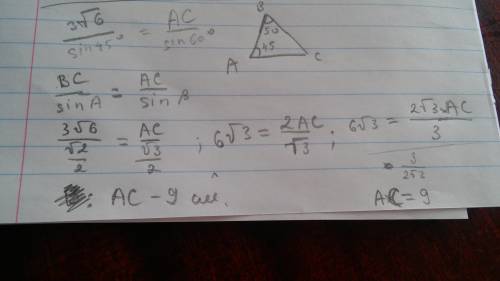 3√6/sin45° = AC/sin60°
B
50
45
A C
BC/sinA = AC/sinB
3√6/(√2/2) = AC/(√3/2) ; 6√3 = 2AC/√3 ; 6√3 = 2√3·AC/3
AC - 9 см.
AC = 9